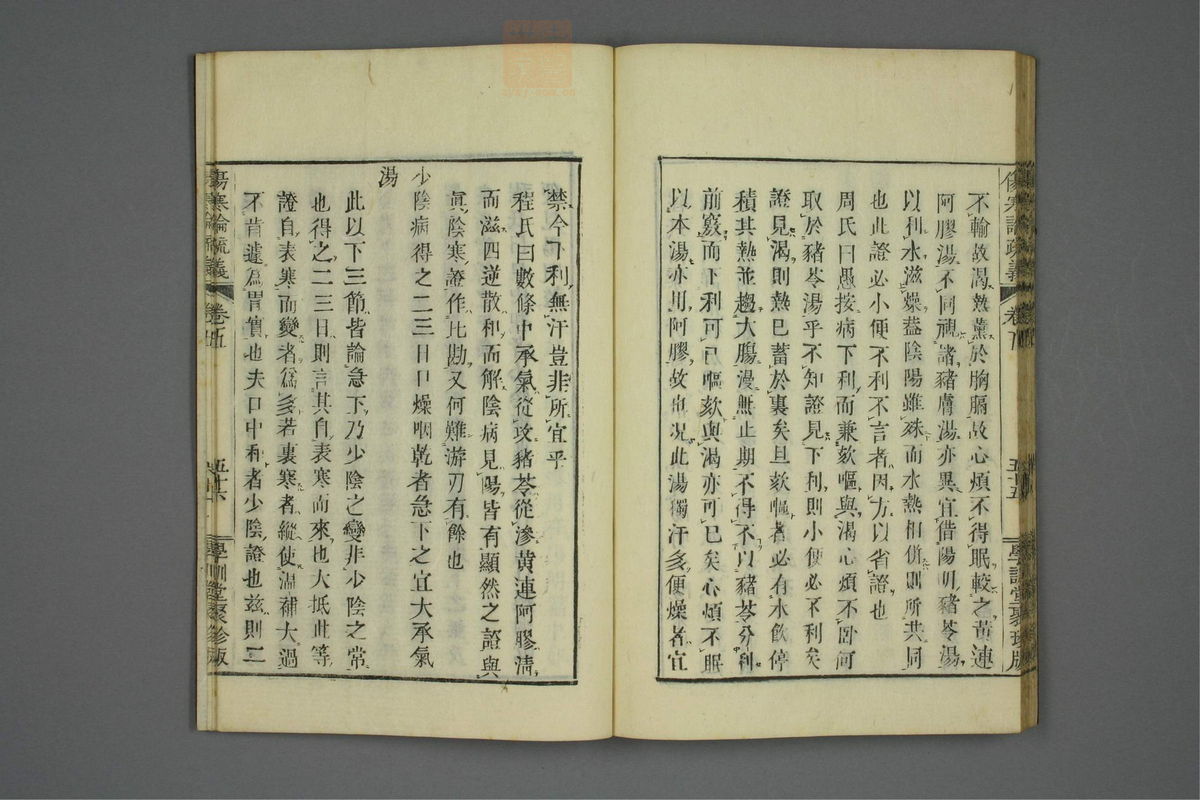 不輸故渴熱薰於胸膈故心煩不得眠較之黃連
阿膠湯不同視諸豬膚湯亦異宜借陽明豬苓湯
以利水滋燥葢陰陽雖殊而水熱相併則所共同
也此證必小便不利不言者因方以省證也
周氏曰愚按病下利而兼欬嘔與渴心煩不卧何
取於豬苓湯乎不知證見下利則小便必不利矣
證見渴則熱已蓄於裏矣且欬嘔者必有水飲停
積其熱並趨大腸漫無止期不得不以豬苓分利
前竅而下利可已嘔欬與渴亦可已矣心煩不眠
以本湯亦用阿膠故也况此湯獨汗多便燥者宜
禁今下利無汗豈非所宜乎
程氏曰數條中承氣從攻豬苓從滲黃連阿膠淸
而滋四逆散和而解陰病見陽皆有顯然之證與
眞陰寒證作比勘又何難游刃有餘也
少陰病得之二三日口燥咽乾者急下之宜大承氣
湯
此以下三節皆論急下乃少陰之變非少陰之常
也得之二三日則言其自表寒而來也大抵此等
證自表寒而變者爲多若裏寒者縱使溫補大過
不肯遽爲胃實也夫口中和者少陰證也茲則二
傷寒論疏義 卷五 五十六 學訓堂聚珍版